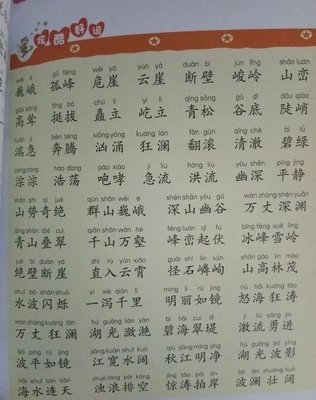 炫酷好词
wēi é gū fēng wēi yá yún yá duàn bì jùn lǐng shān luán
巍峨 孤峰 危崖 云崖 断壁 峻岭 山峦
gāo sǒng tǐng bá chù lì yì lì qīng sōng gǔ dǐ dǒu qiào
高耸 挺拔 矗立 屹立 青松 谷底 陡峭
tuān jí bēn téng xiōng yǒng kuáng lán fān gǔn qīng chè bì lǜ
湍急 奔腾 汹涌 狂澜 翻滚 清澈 碧绿
cóng cóng hào dàng páo xiào jí liú hóng liú yōu shēn píng jìng
淙淙 浩荡 咆哮 急流 洪流 幽深 平静
shān shì qí jué qún shān wēi é shēn shān yōu gǔ wàn zhàng shēn yuān
山势奇绝 群山巍峨 深山幽谷 万丈深渊
qīng shān dié cuì qiān shān wàn hè fēng luán qǐ fú bīng fēng xuě lǐng
青山叠翠 千山万壑 峰峦起伏 冰峰雪岭
jué bì duàn yá zhí rù yún xiāo guài shí lín xún shān gāo lín mào
绝壁断崖 直入云霄 怪石嶙峋 山高林茂
shuǐ bō shǎn shuò yí xiè qiān lǐ míng lì rú jìng nù hǎi kuáng tāo
水波闪烁 一泻千里 明丽如镜 怒海狂涛
wàn zhàng kuáng lán hú guāng liàn yàn bì hǎi cuì dī jī liú yǒng jìn
万丈狂澜 湖光潋滟 碧海翠堤 激流勇进
bō píng rú jìng jiāng kuān shuǐ kuò qiū jiāng míng jìng hú guāng bō yǐng
波平如镜 江宽水阔 秋江明净 湖光波影
hǎi shuǐ lián tiān zhuó làng pái kōng jīng tāo pāi àn bō lán zhuàng kuò
海水连天 浊浪排空 惊涛拍岸 波澜壮阔